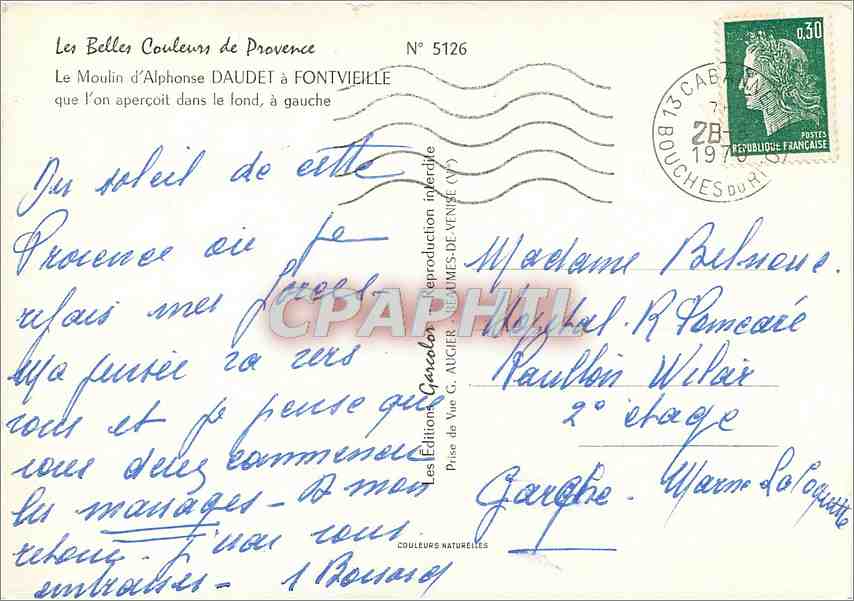 Les Belles Couleurs de Provence
N° 5126
Le Moulin d'Alphonse DAUDET à FONTVIEILLE
que l'on aperçoit dans le fond, à gauche
0,30
POSTES
REPUBLIQUE FRANÇAISE
13 CABANN
28
197
BOUCHES DU RH
Du soleil de cette
Provence où je
refais mes forces -
Ma pensée va vers
vous et je pense que
vous devez commencer
les massages - A mon
retour j'irai vous
embrasser - 1 Bossard
Les Editions Garcolor - Reproduction interdite
Prise de Vue G. AUGIER - BEAUMES-DE-VENISE (Vse)
CPAPHIL
COULEURS NATURELLES
Madame
Hopital - R Poincaré
Pavillon Widal
2° étage
Garches - Marne La Coquette